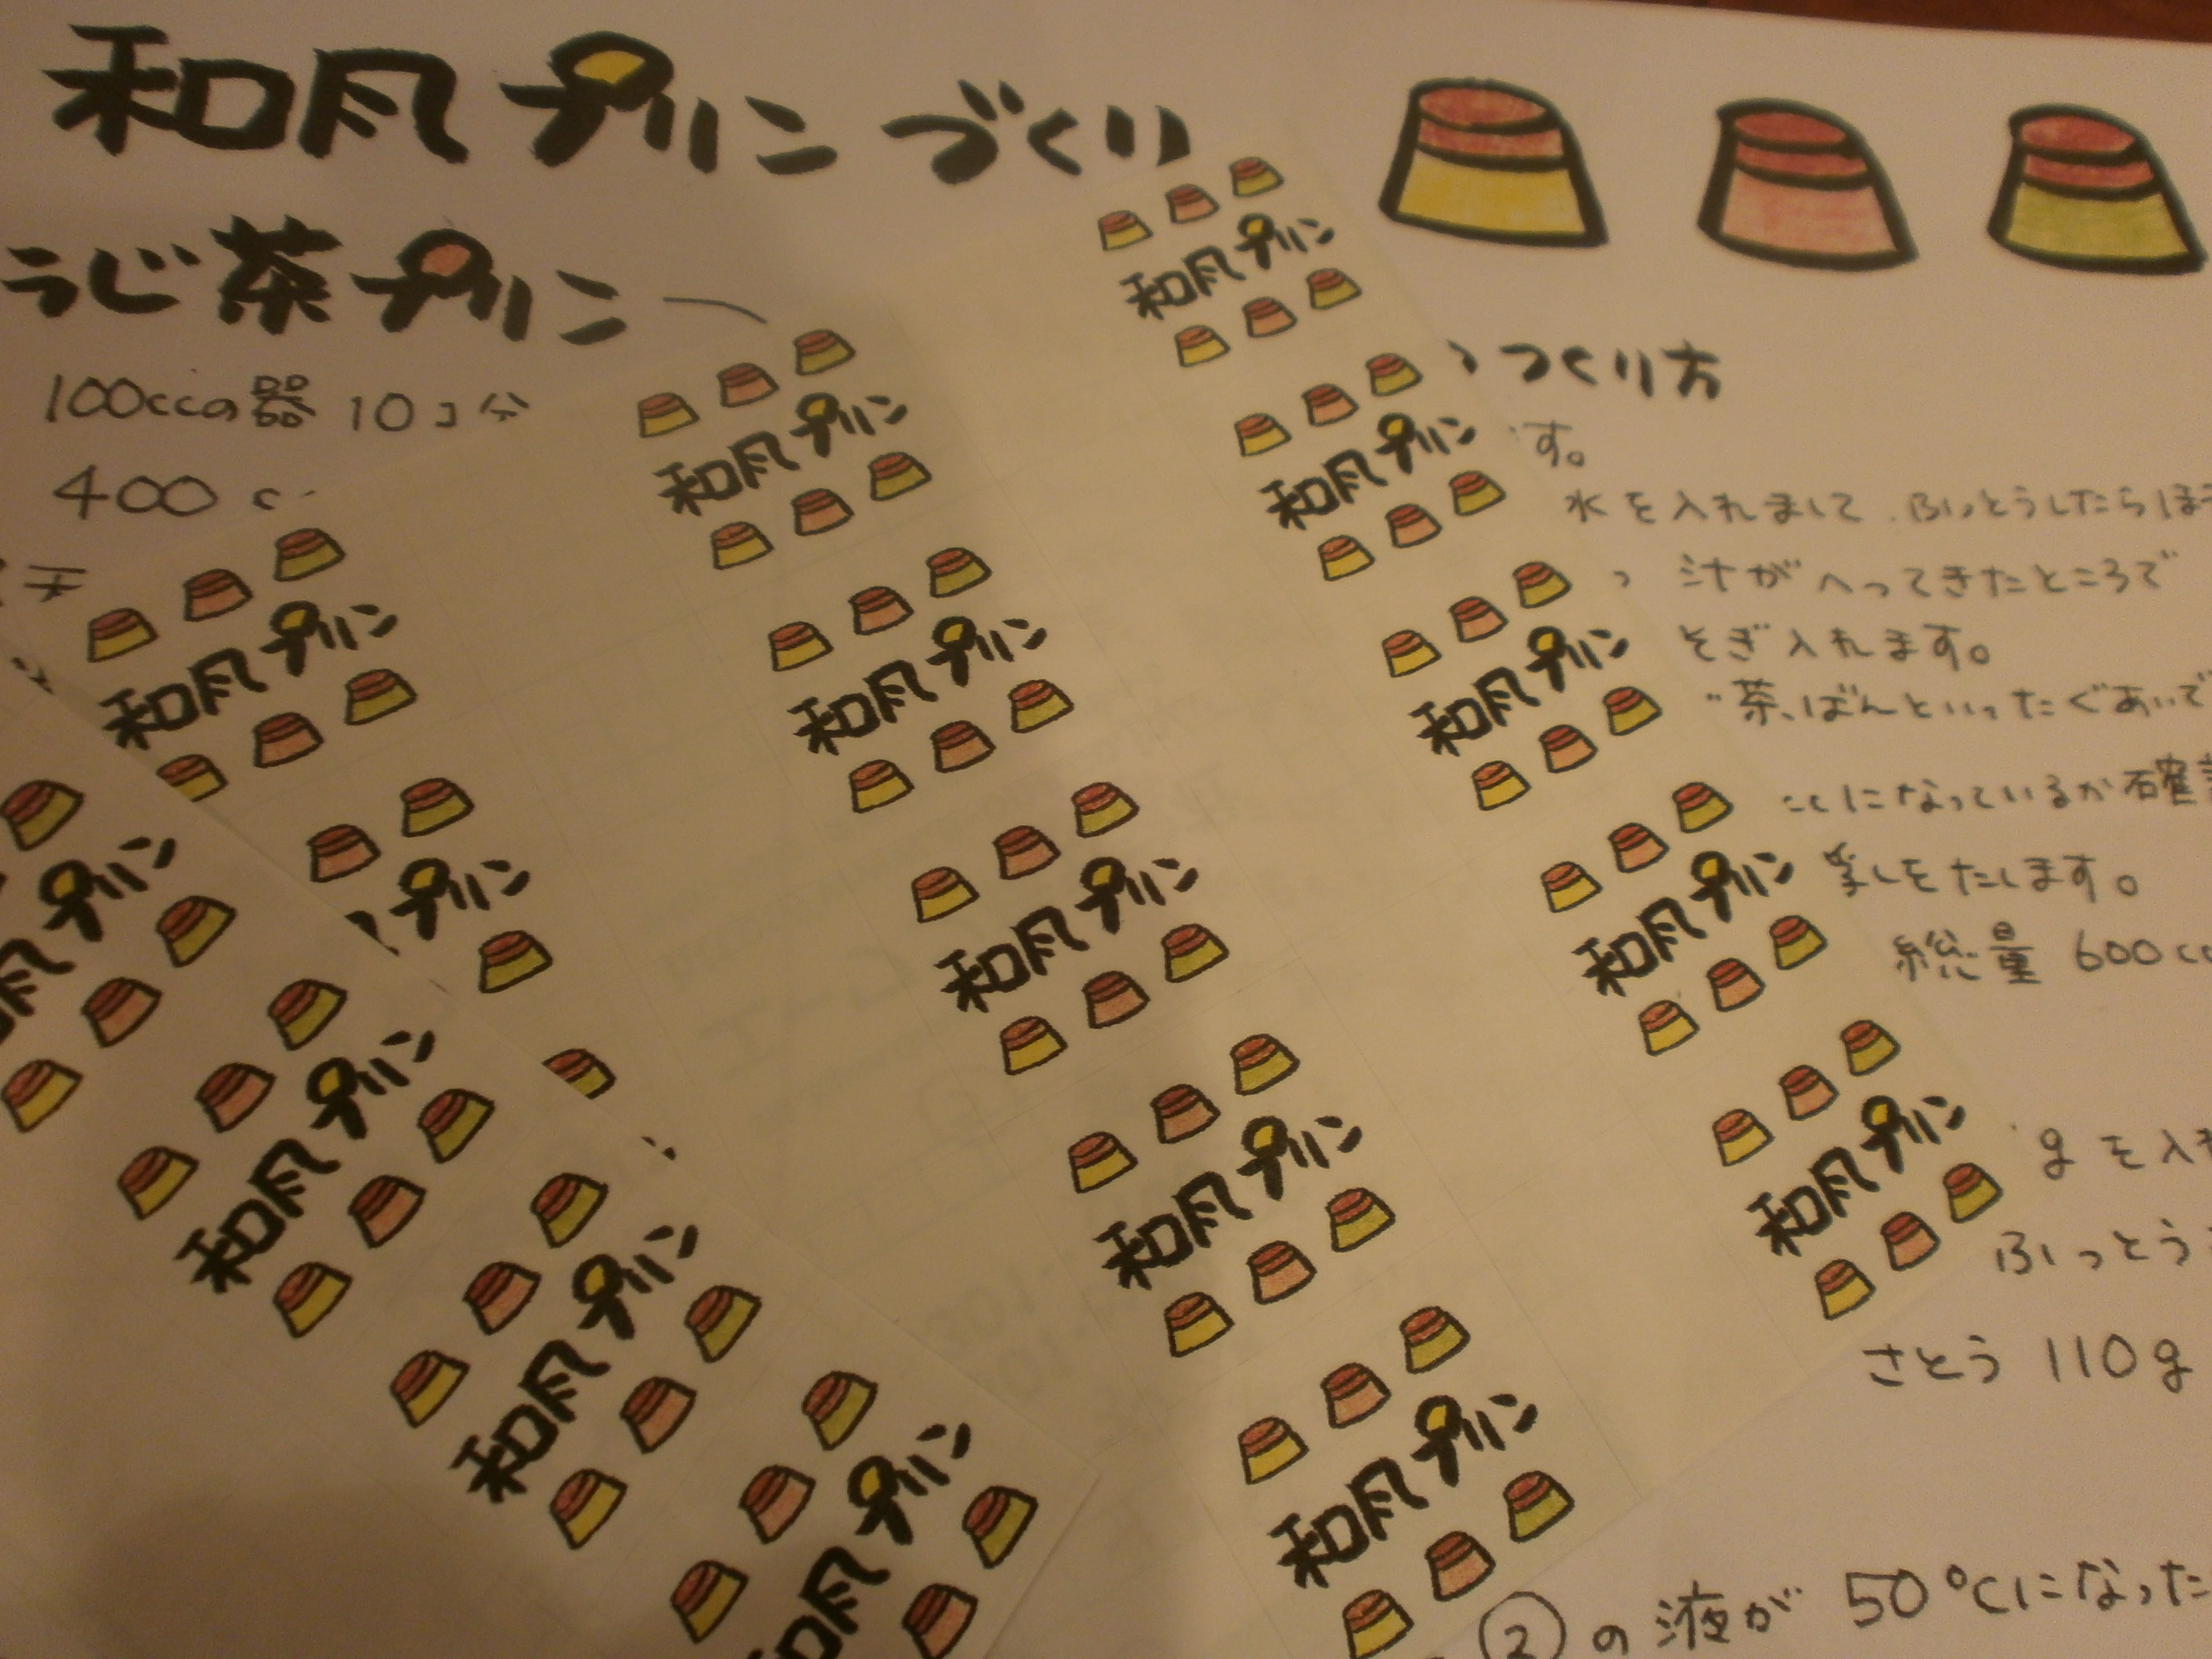 和風プリンづくり
うじ茶プリン
100ccの器 10コ分
400 c
つくり方
す。
水を入れまして、ふっとうしたらほ
汁がへってきたところで
そぎ入れます。
茶、ばんといったぐあいで
ccになっているか確認
足しをたします。
総量 600cc
gを入れ
ふっとう
さとう 110g
②の液が 50℃になった
和風プリン
和風プリン
和風プリン
和風プリン
和風プリン
和風プリン
和風プリン
和風プリン
和風プリン
和風プリン
和風プリン
プリン
風プリン
和風プリン
和風プリン
和風プリン